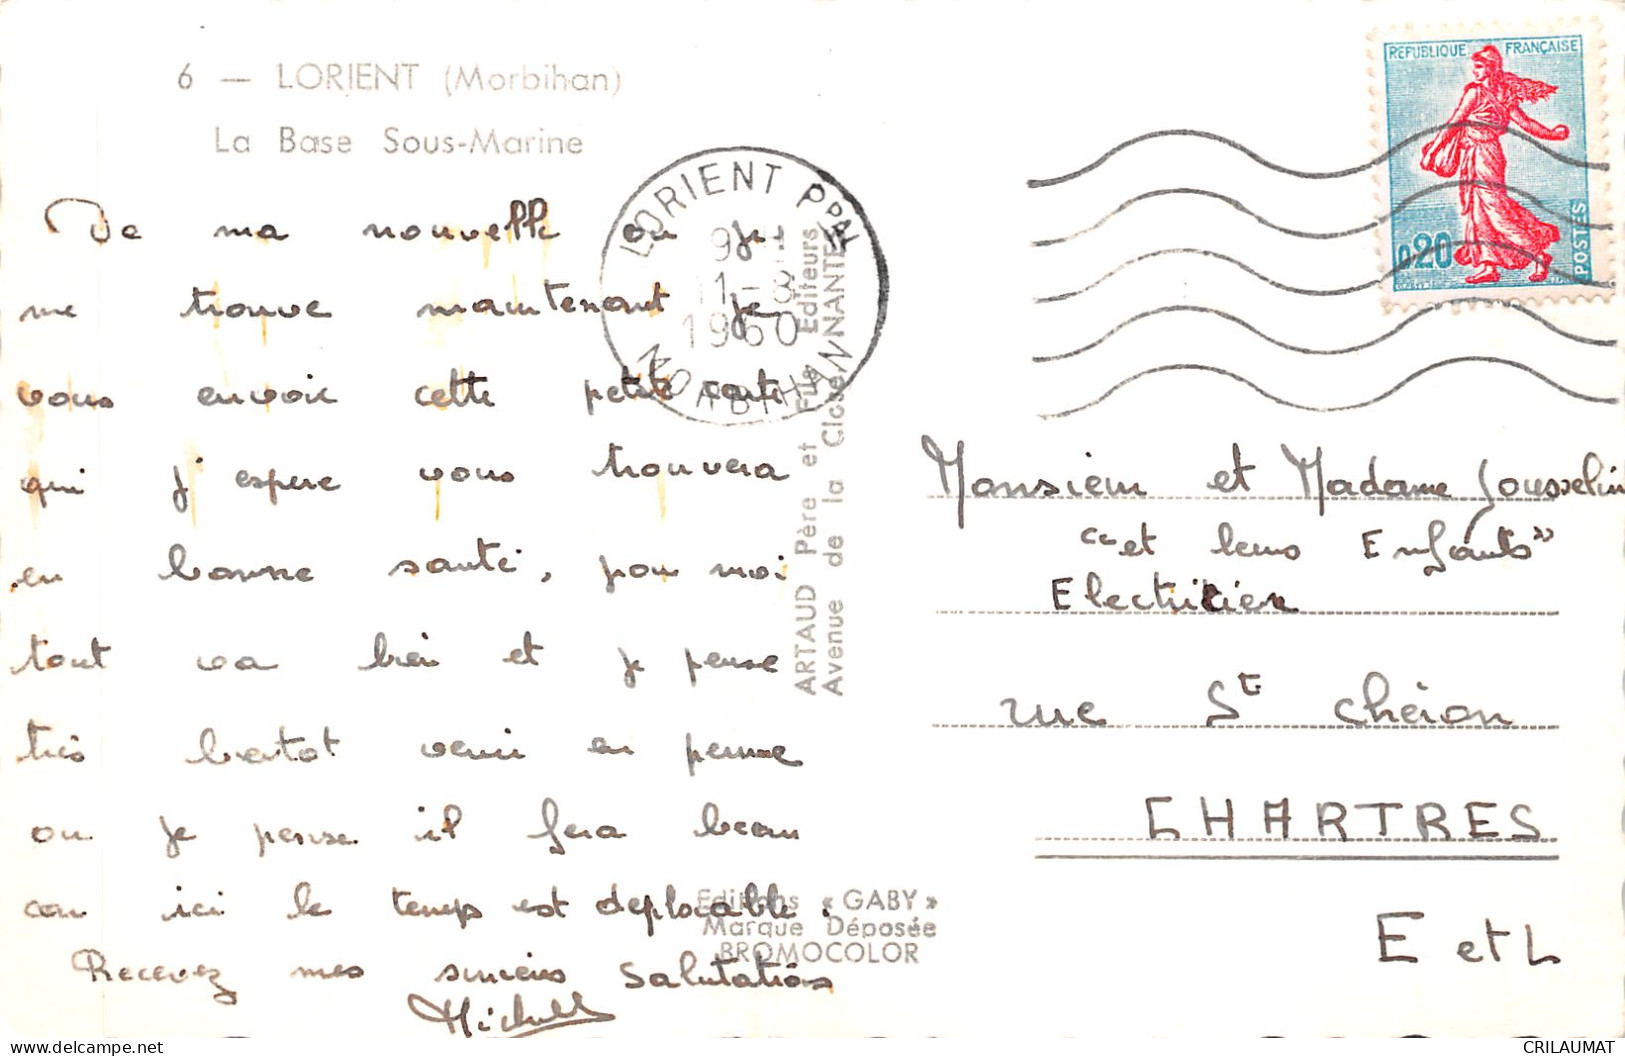 6 — LORIENT (Morbihan)
La Base Sous-Marine
De ma nouvelle ou je
me trouve maintenant je
vous envoie cette petite carte
qui j'espere vous trouvera
en bonne santé, pour moi
tout va bien et je pense
très bientot venir en perme
ou je pense il fera beau
car ici le temps est deplorable.
Recevez mes sincères salutations
Michel
LORIENT PPAL
11-8
1960
MORBIHAN
ARTAUD Père et Fils Editeurs
Avenue de la Close NANTES
Editions « GABY »
Marque Déposée
BROMOCOLOR
REPUBLIQUE FRANÇAISE
0,20
POSTES
Monsieur et Madame Jousselin
"et leurs Enfants"
Electricien
rue St Chéron
CHARTRES
E et L
CRILAUMAT